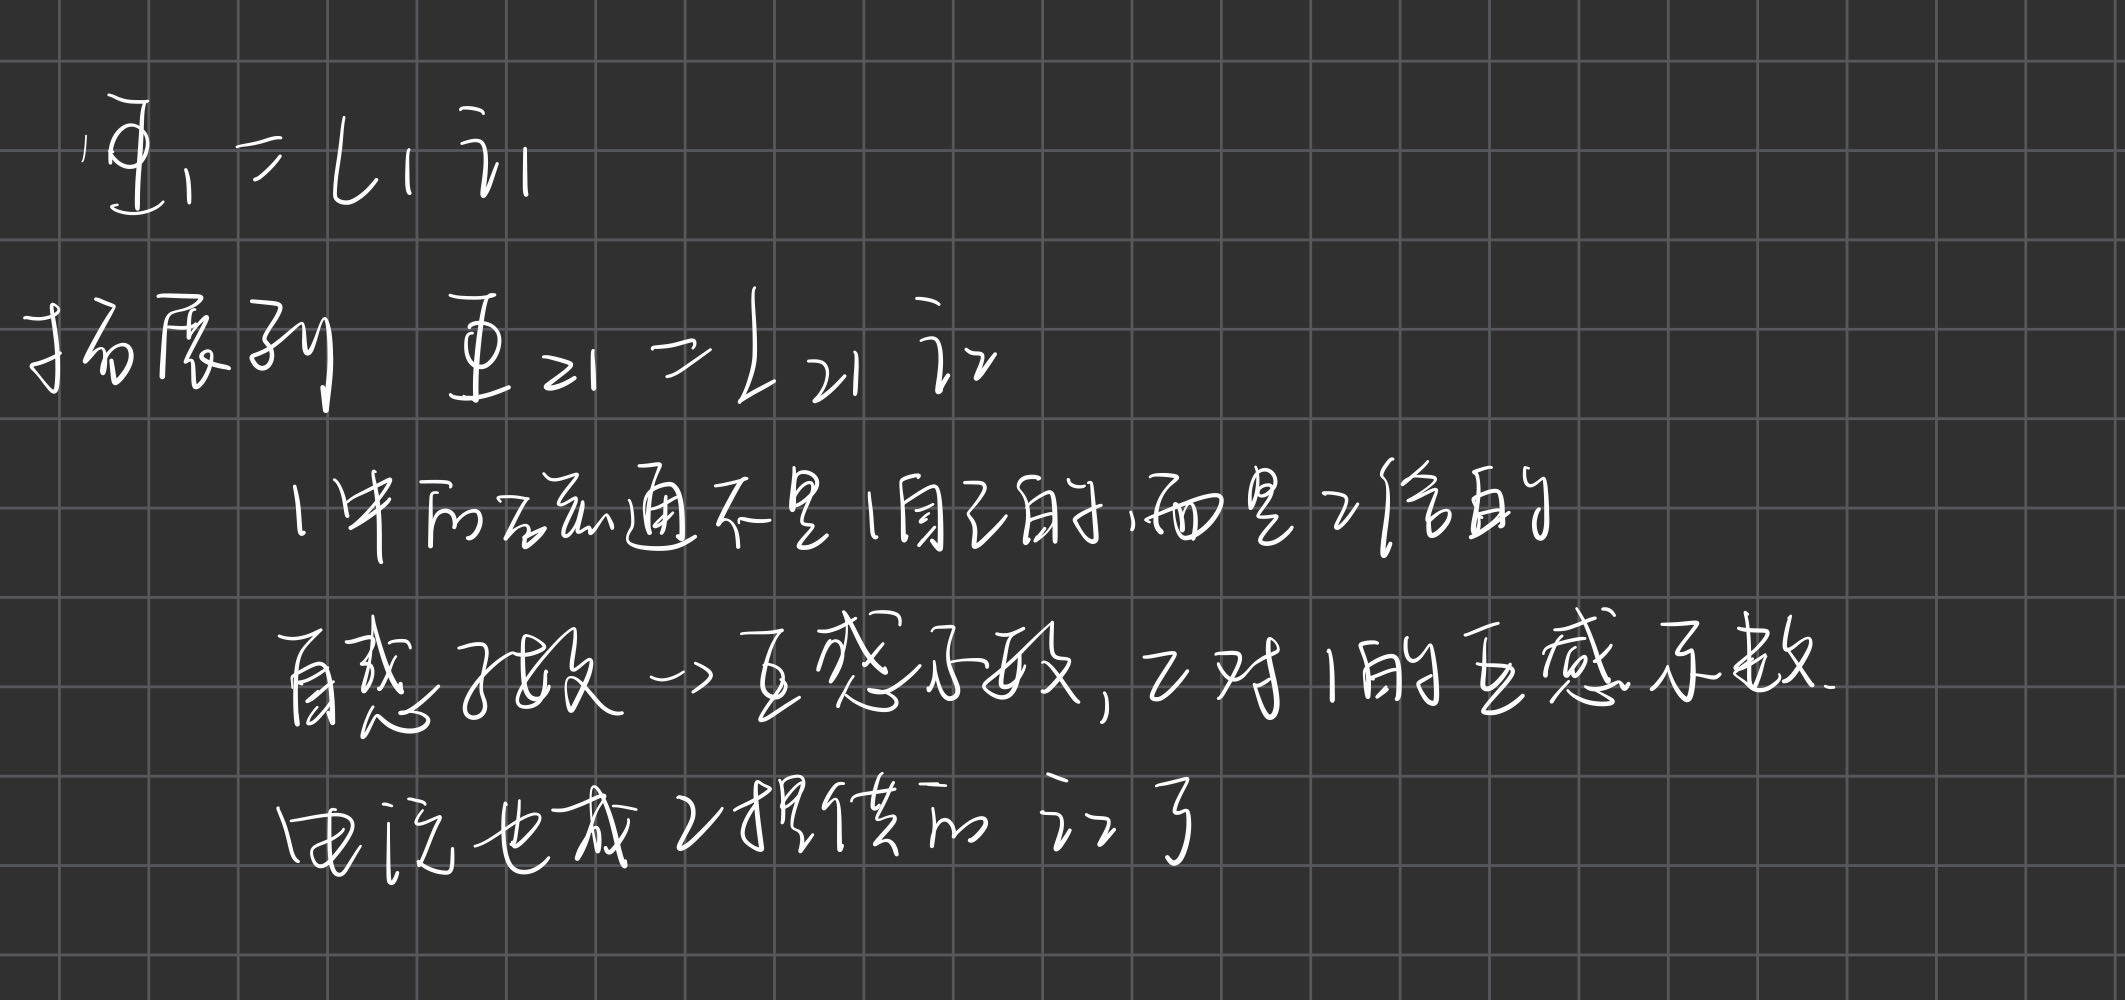 Φ₁ = L₁ i₁
拓展到 Φ₂₁ = L₂₁ i₂
1中的磁通不是1自己的,而是2给的
自感系数→互感系数,2对1的互感系数.
电流也成2提供的 i₂了